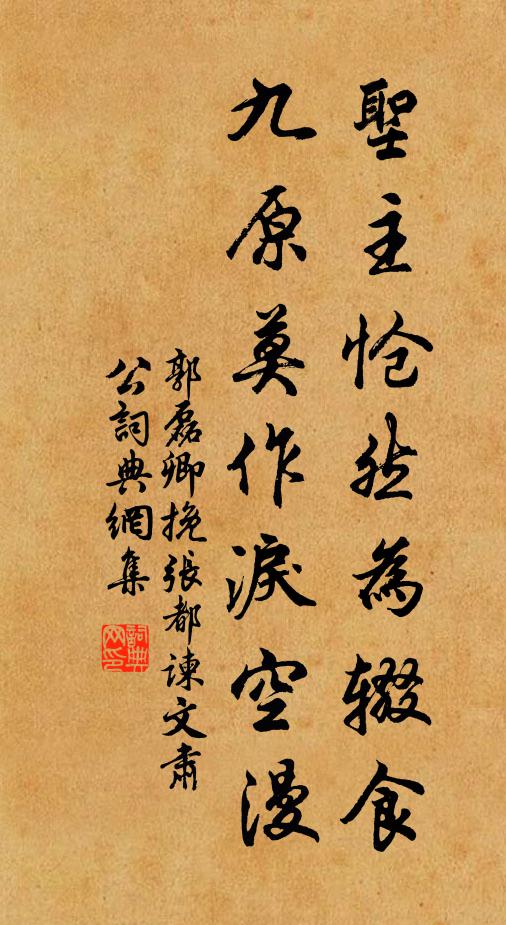 聖主怆然為辍食
九原莫作淚空漫
郭磊卿挽張都諫文肅
公詞典網集
詞典網印